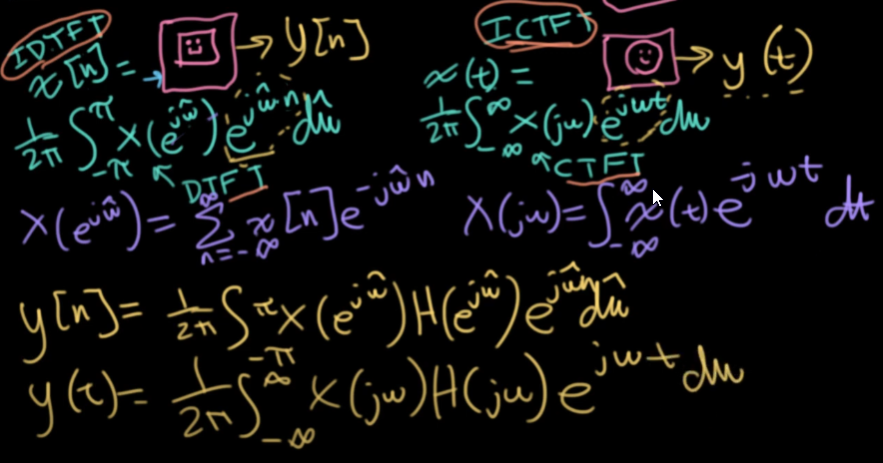 IDTFT
x[n] = → y[n]
1/2π ∫_{-π}^{π} X(e^{jω̂}) e^{jω̂n} dω̂
DTFT
X(e^{jω̂}) = ∑_{n=-∞}^{∞} x[n] e^{-jω̂n}
ICTFT
x(t) = → y(t)
1/2π ∫_{-∞}^{∞} X(jω) e^{jωt} dω
CTFT
X(jω) = ∫_{-∞}^{∞} x(t) e^{-jωt} dt
y[n] = 1/2π ∫_{-π}^{π} X(e^{jω̂}) H(e^{jω̂}) e^{jω̂n} dω̂
y(t) = 1/2π ∫_{-∞}^{∞} X(jω) H(jω) e^{jωt} dω